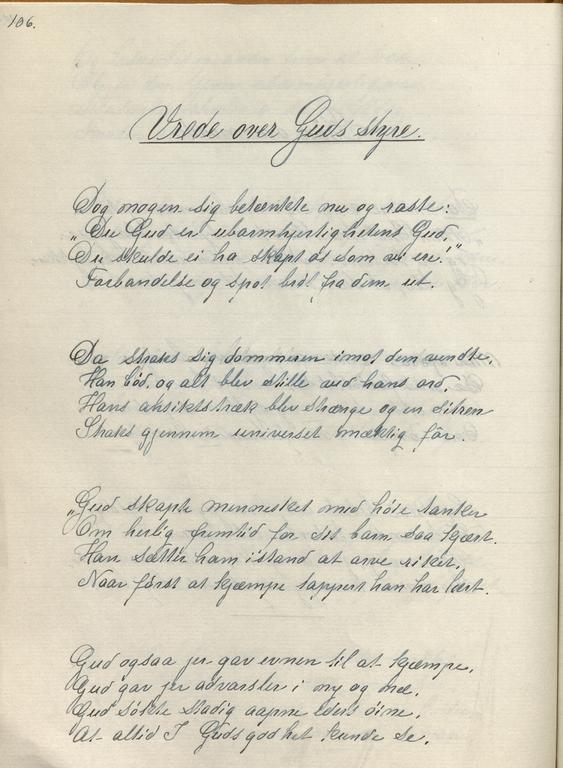 106.
Vrede over Guds styre.
Dog nogen sig betænkte nu og raste:
„Du Gud er ubarmhjertighetens Gud,
Du skulde ei ha skapt os som vi ere."
Forbandelse og spot brøt fra dem ut.
Da straks sig dommeren imot dem vendte,
Han bød, og alt blev stille ved hans ord,
Hans ansiktstræk blev strænge og en sitren
Straks gjennem universet mæktig fôr.
„Gud skapte mennesket med höie tanker
Om herlig fremtid for sit barn saa kjært.
Han sætter ham istand at arve riket,
Naar först at kjæmpe tappert han har lært.
Gud ogsaa jer gav evnen til at kjæmpe,
Gud gav jer advarsler i ny og næ,
Gud sökte stadig aapne eders öine,
At altid I Guds godhet kunde se.